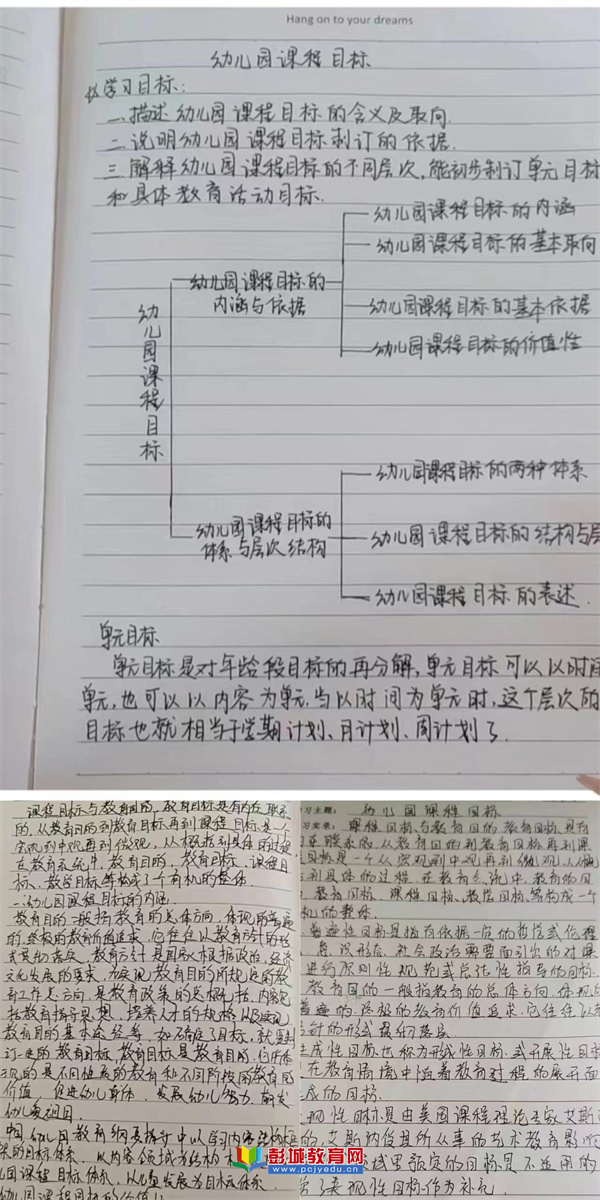 Hang on to your dreams
幼儿园课程目标
学习目标:
一.描述幼儿园课程目标的含义及取向.
二.说明幼儿园课程目标制订的依据.
三.解释幼儿园课程目标的不同层次,能初步制订单元目标
和具体教育活动目标.
幼儿园课程目标
幼儿园课程目标的
内涵与依据
幼儿园课程目标的内涵
幼儿园课程目标的基本取向
幼儿园课程目标的基本依据
幼儿园课程目标的价值性
幼儿园课程目标的
体系与层次结构
幼儿园课程目标的两种体系
幼儿园课程目标的结构与层
幼儿园课程目标的表述
单元目标
单元目标是对年龄段目标的再分解,单元目标可以以时间
单元,也可以以内容为单元.当以时间为单元时,这个层次的
目标也就相当于学期计划、月计划、周计划了.
课程目标与教育目的、教育目标是有内在联系
的,从教育目的到教育目标再到课程目标是一个
宏观到中观再到微观,从
在教育系统中,教育目的、教育目标、课程目
标、教学目标等构成了一个有机的整体.
一.幼儿园课程目标的内涵.
教育目的一般指教育的总体方向,体现的普遍
的、终极的教育价值追求,它往往以教育方针的形
文化发展的要求,为实现教育目的所规定的教
育工作总方向,是教育政策的总概括,内容包
括教育指导思想、培养人才的规格以及实现
教育目的基本途径等.
订一定的教育目标,教育目标是教育目的
现的是不同性质的教育和不同阶段的教育的
价值,促进幼儿身体、发展幼儿智力
习主题: 幼儿园课程目标
习实录: 课程目标与教育目的、教育目标是有
内在联系的,从教育目的到教育目标再到课
程目标是一个从宏观到中观再到微观,从
到具体的过程.在教育系统中,教育目的
、教育目标、课程目标、教学目标等构成一个
机的整体.
普遍性目标是指有依据一定的哲学或伦理
、意识形态、社会政治需要而引出的对课
进行原则性规范或总括性指导的目标
教育目的一般指教育的总体方向,体现的
普遍的、终极的教育价值追求,它往往以教
方针的形式
生成性目标也称为形成性目标、或开展性目标
在教育情境中随着教育过程的展开而
成的目标.
现性目标是由美国课程理论专家艾斯
的,艾斯纳
域里预定的目标是不适用的
了表现性目标作为补充
彭城教育网
www.pcjyedu.cn